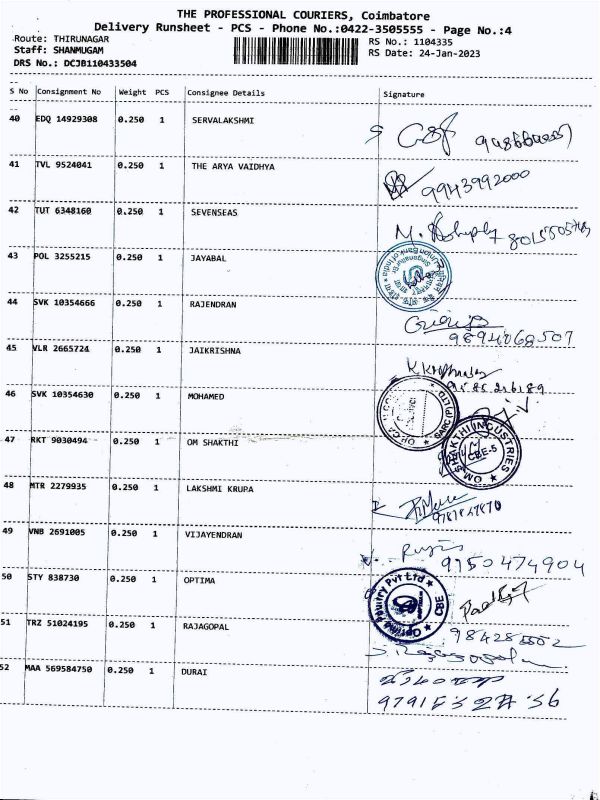 THE PROFESSIONAL COURIERS, Coimbatore
Delivery Runsheet - PCS - Phone No.:0422-3505555 - Page No.:4
Route: THIRUNAGAR
Staff: SHANMUGAM
DRS No.: DCJB110433504
RS No.: 1104335
RS Date: 24-Jan-2023
S No Consignment No Weight PCS Consignee Details Signature
40 EDQ 14929308 0.250 1 SERVALAKSHMI
41 TVL 9524041 0.250 1 THE ARYA VAIDHYA 9943992000
42 TUT 6348160 0.250 1 SEVENSEAS
43 POL 3255215 0.250 1 JAYABAL
Union Bank of India
44 SVK 10354666 0.250 1 RAJENDRAN
9894068507
45 VLR 2665724 0.250 1 JAIKRISHNA
46 SVK 10354630 0.250 1 MOHAMED
47 RKT 9030494 0.250 1 OM SHAKTHI
OM SHAKTHI INDUSTRIES
CBE-5
48 MTR 2279935 0.250 1 LAKSHMI KRUPA
49 VNB 2691005 0.250 1 VIJAYENDRAN
9150474904
50 STY 838730 0.250 1 OPTIMA
Optima Poultry Pvt Ltd
CBE
51 TRZ 51024195 0.250 1 RAJAGOPAL
52 MAA 569584750 0.250 1 DURAI